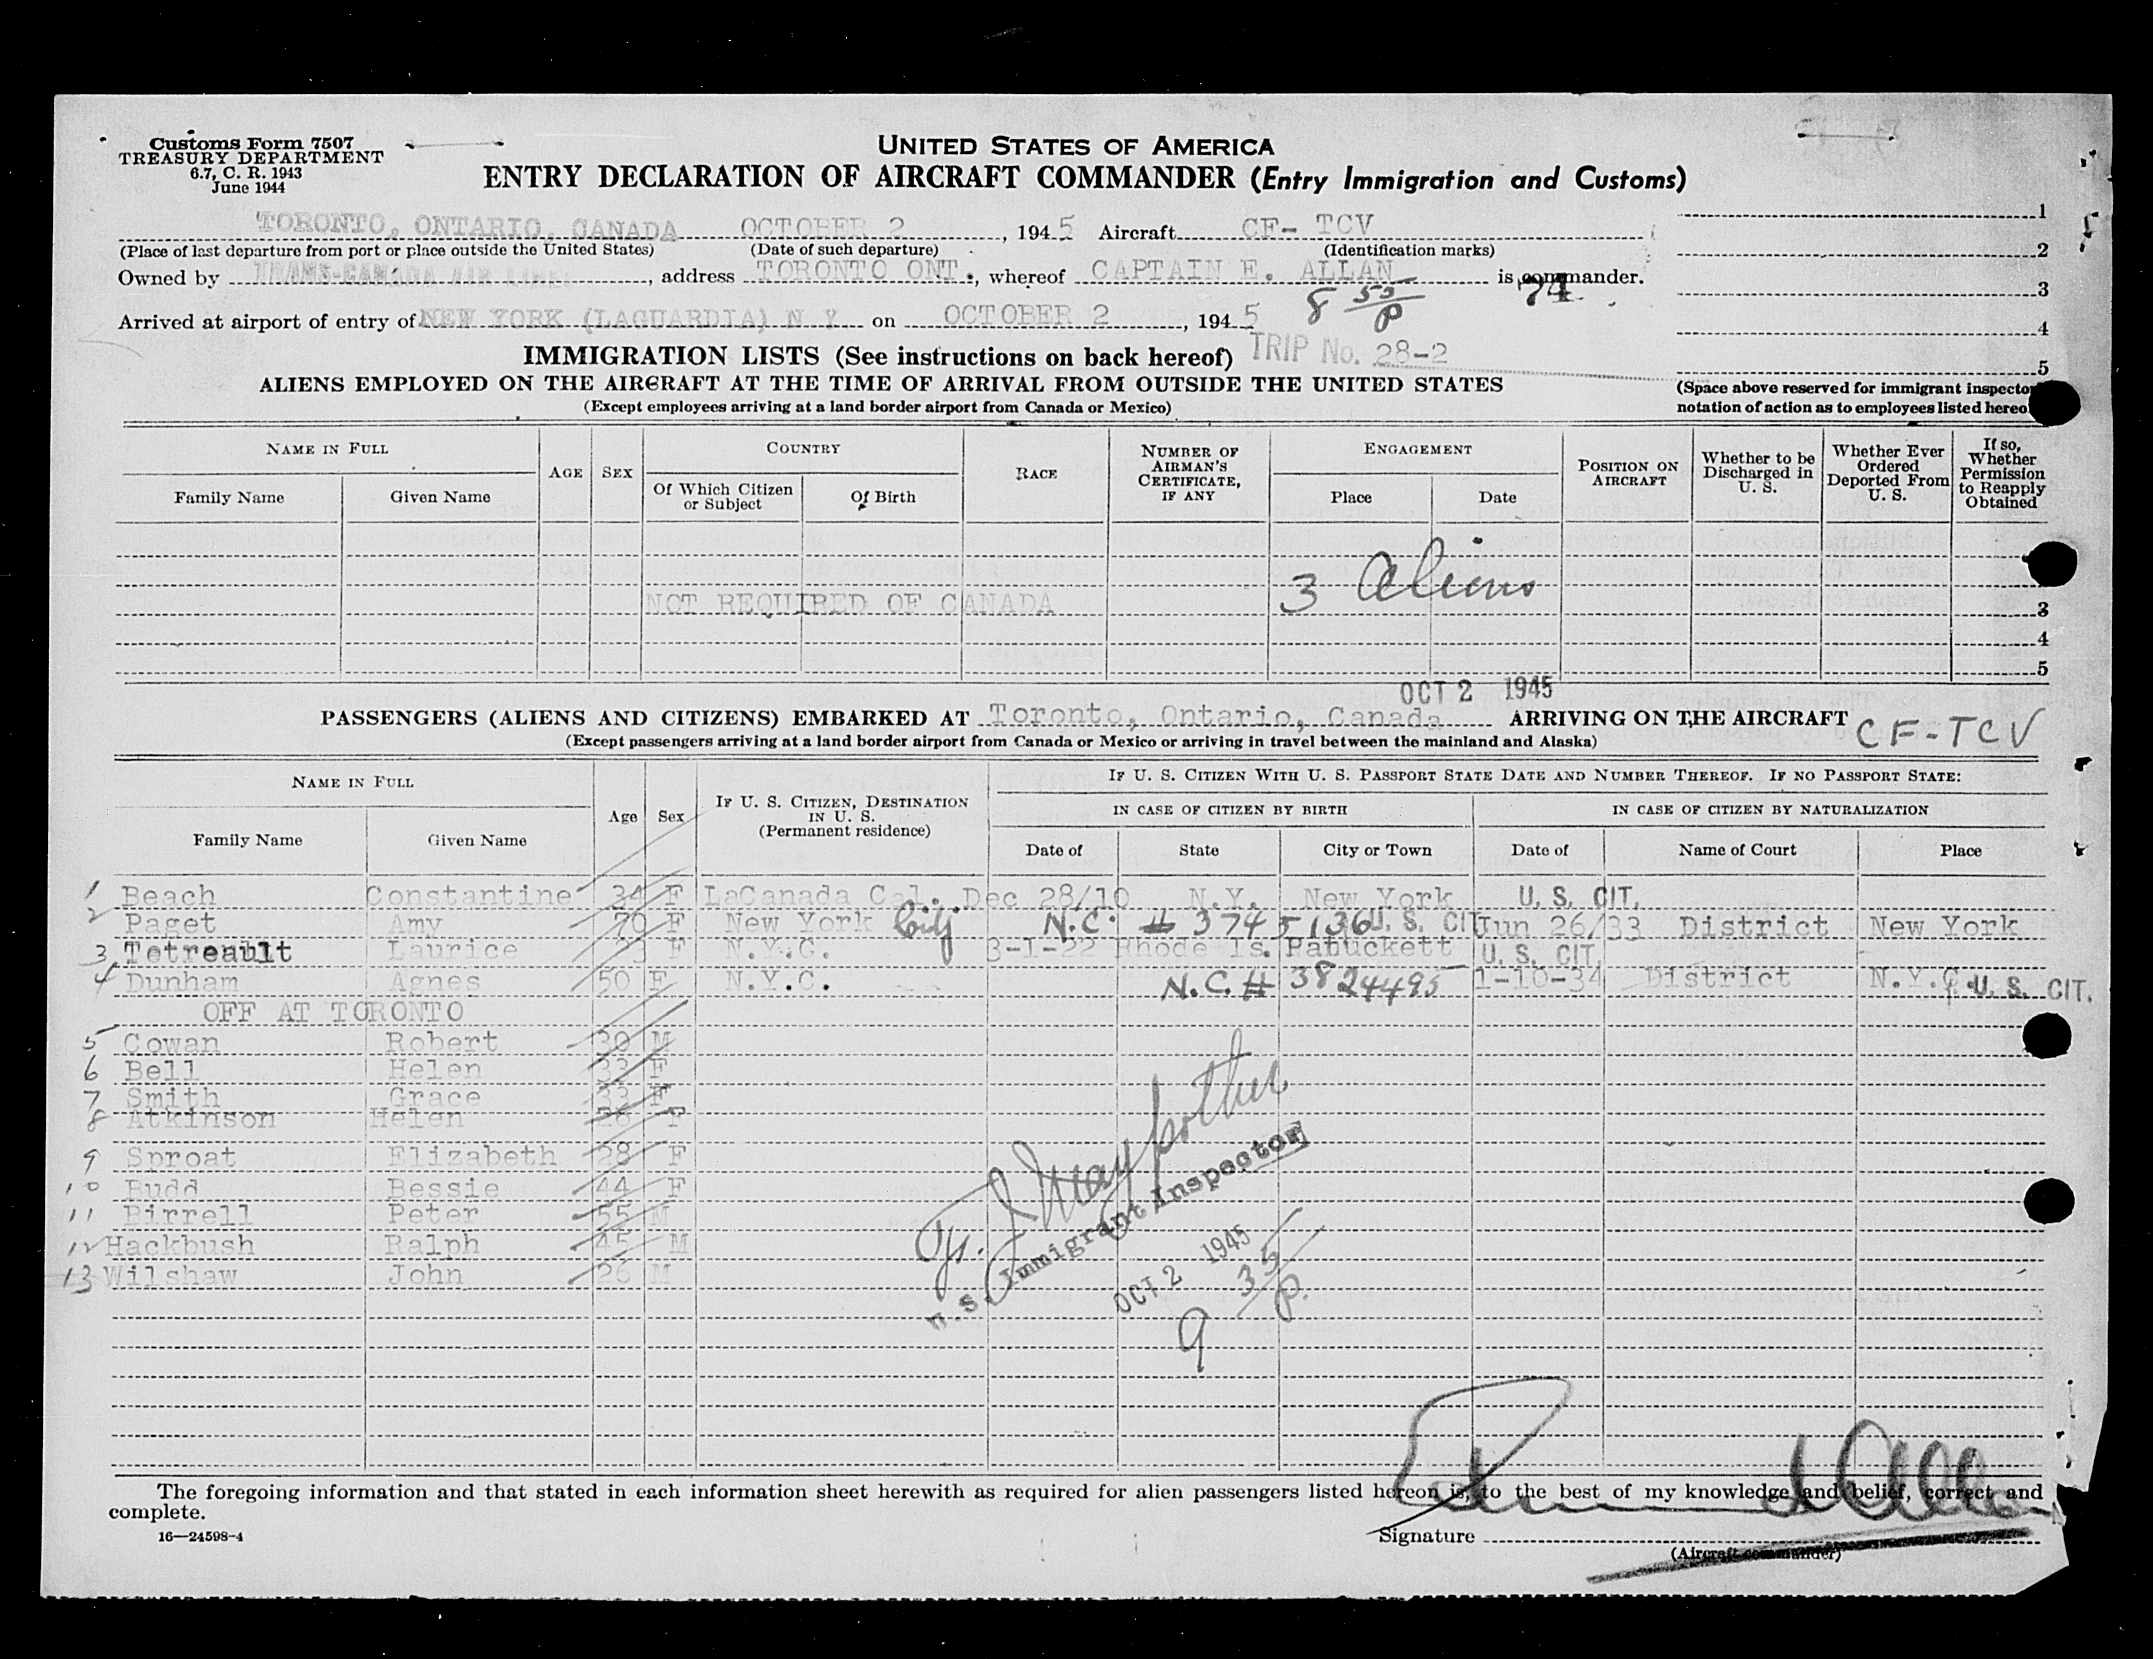 Customs Form 7507
TREASURY DEPARTMENT
6.7, C. R. 1943
June 1944
UNITED STATES OF AMERICA
ENTRY DECLARATION OF AIRCRAFT COMMANDER (Entry Immigration and Customs)
TORONTO, ONTARIO, CANADA OCTOBER 2, 1945 Aircraft CF- TCV
(Place of last departure from port or place outside the United States) (Date of such departure) (Identification marks)
Owned by TRANS-CANADA AIR LINES, address TORONTO ONT., whereof CAPTAIN E. ALLAN is commander.
74
8 55/P
Arrived at airport of entry of NEW YORK (LAGUARDIA) N Y on OCTOBER 2, 1945
1
2
3
4
5
(Space above reserved for immigrant inspector
notation of action as to employees listed hereo
IMMIGRATION LISTS (See instructions on back hereof) TRIP No. 28-2
ALIENS EMPLOYED ON THE AIRCRAFT AT THE TIME OF ARRIVAL FROM OUTSIDE THE UNITED STATES
(Except employees arriving at a land border airport from Canada or Mexico)
NAME IN FULL AGE SEX COUNTRY RACE NUMBER OF AIRMAN'S CERTIFICATE, IF ANY ENGAGEMENT POSITION ON AIRCRAFT Whether to be Discharged in U. S. Whether Ever Ordered Deported From U. S. If so, Whether Permission to Reapply Obtained
Family Name Given Name Of Which Citizen or Subject Of Birth Place Date
3 Aliens
NOT REQUIRED OF CANADA 3
4
5
OCT 2 1945
PASSENGERS (ALIENS AND CITIZENS) EMBARKED AT Toronto, Ontario, Canada ARRIVING ON THE AIRCRAFT CF-TCV
(Except passengers arriving at a land border airport from Canada or Mexico or arriving in travel between the mainland and Alaska)
NAME IN FULL Age Sex IF U. S. CITIZEN, DESTINATION IN U. S. (Permanent residence) IF U. S. CITIZEN WITH U. S. PASSPORT STATE DATE AND NUMBER THEREOF. IF NO PASSPORT STATE:
IN CASE OF CITIZEN BY BIRTH IN CASE OF CITIZEN BY NATURALIZATION
Family Name Given Name Date of State City or Town Date of Name of Court Place
1 Beach Constantine 34 F LaCanada Cal. Dec 28/10 N.Y. New York U. S. CIT.
2 Paget Amy 70 F New York City N.C. # 3745136 U. S. CIT Jun 26/33 District New York
3 Tetreault Laurice 23 F N.Y.C. 3-1-22 Rhode Is. Patuckett U. S. CIT.
4 Dunham Agnes 50 F N.Y.C. N.C. # 3824495 1-10-34 District N.Y.C. U. S. CIT.
OFF AT TORONTO
5 Cowan Robert 30 M
6 Bell Helen 33 F
7 Smith Grace 33 F
8 Atkinson Helen 26 F
9 Sproat Elizabeth 28 F
10 Budd Bessie 44 F
11 Birrell Peter 55 M
12 Hackbush Ralph 45 M
13 Wilshaw John 26 M
U.S. Immigrant Inspector
OCT 2 1945
9 35/P.
The foregoing information and that stated in each information sheet herewith as required for alien passengers listed hereon is, to the best of my knowledge and belief, correct and
complete.
16—24598-4
Signature
(Aircraft commander)